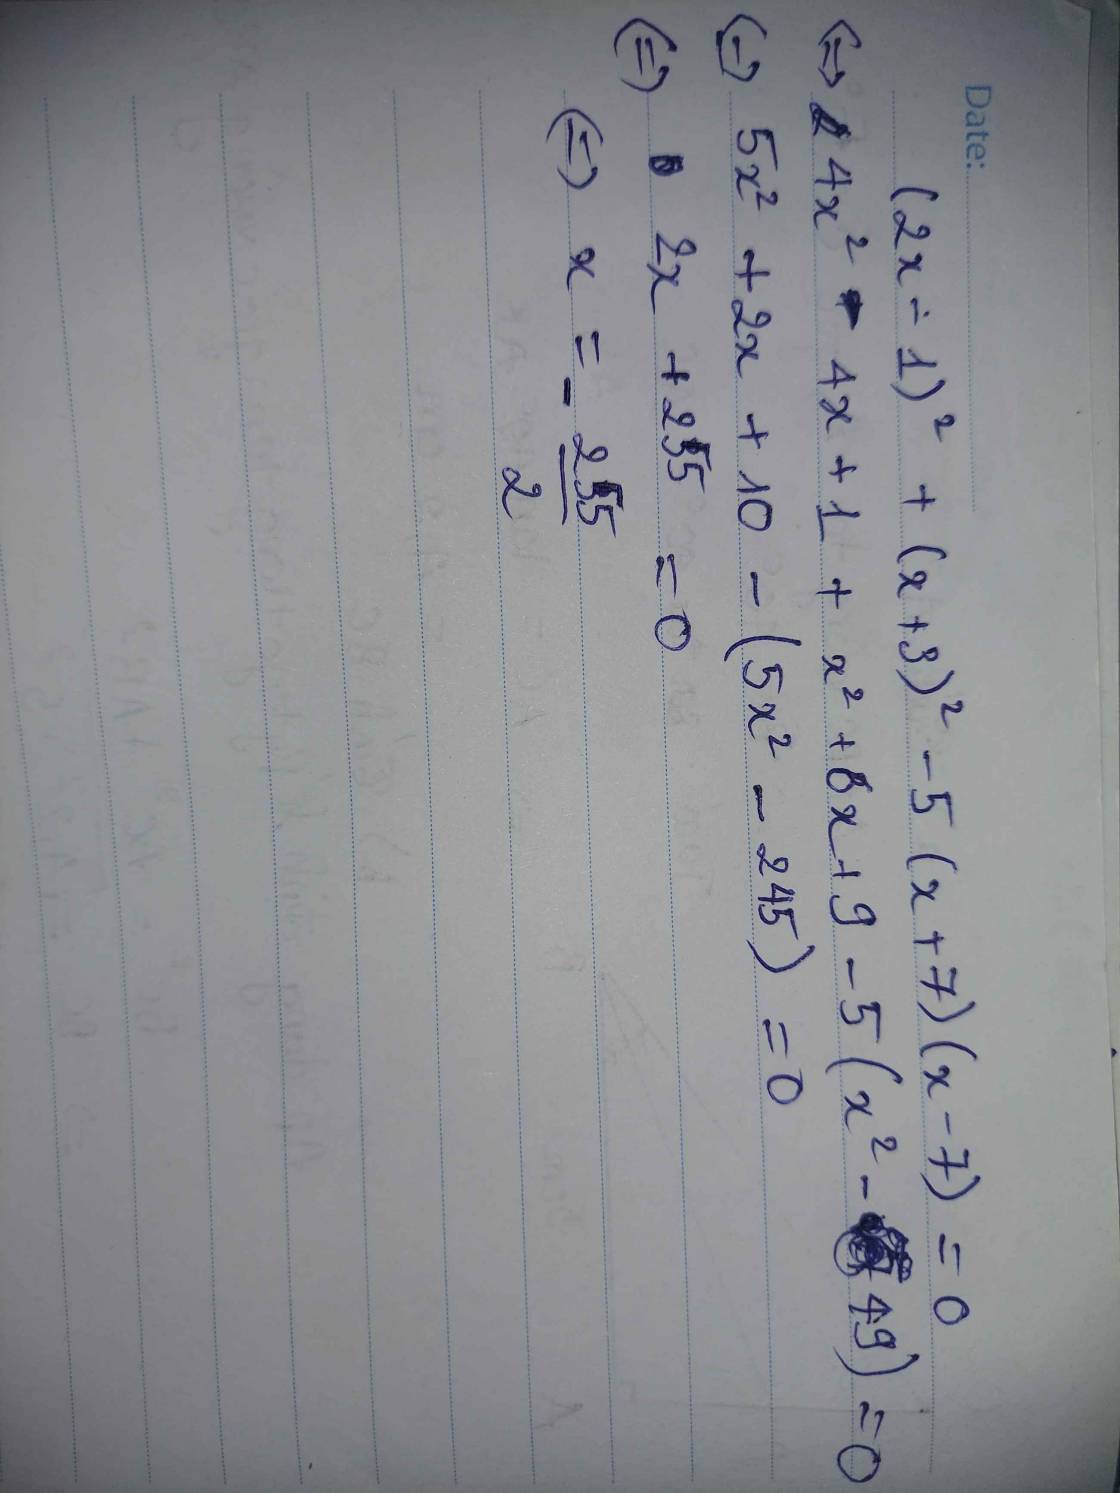 Date:
(2x - 1)² + (x+3)² - 5(x+7)(x-7) = 0
(=) 4x² - 4x + 1 + x² + 6x + 9 - 5(x² - 49) = 0
(=) 5x² + 2x + 10 - (5x² - 245) = 0
(=) 2x + 255 = 0
(=) x = - 255
2